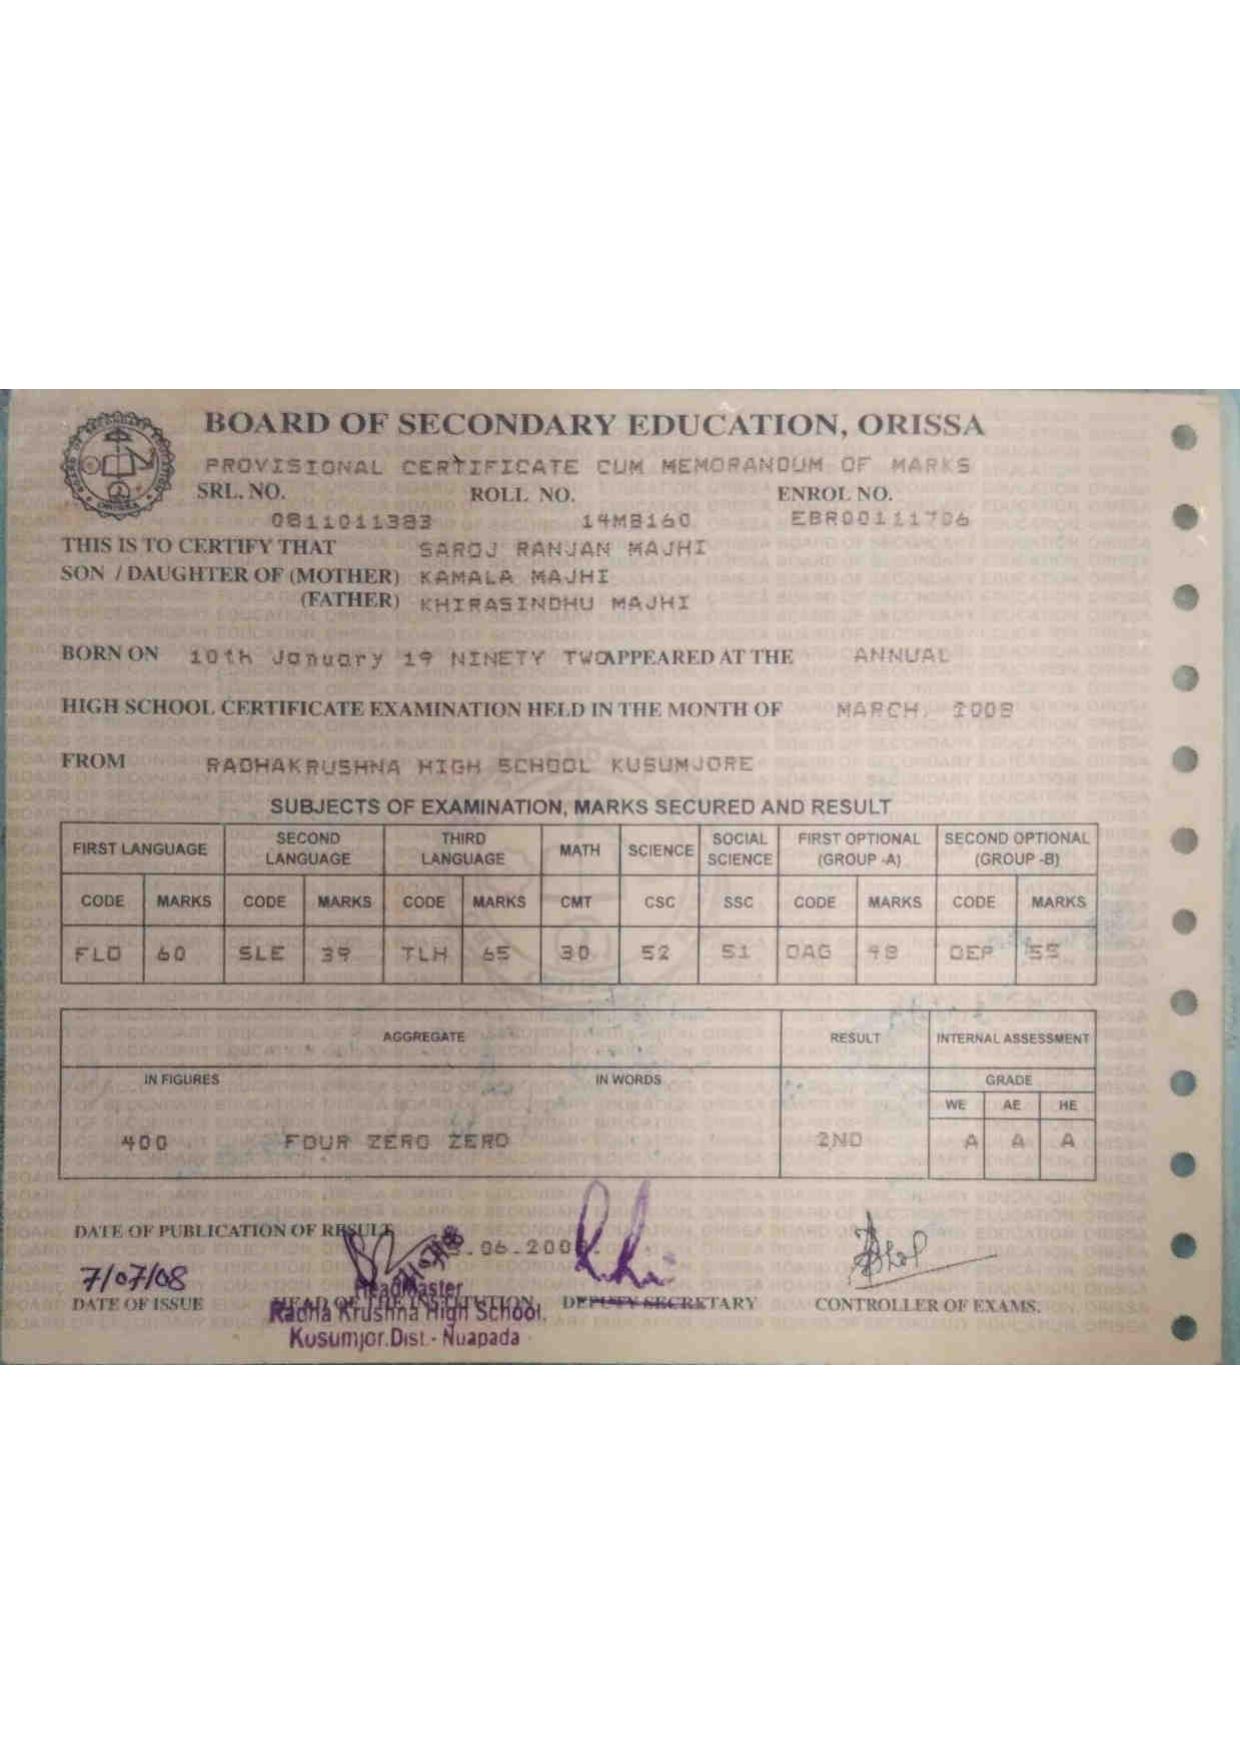 BOARD OF SECONDARY EDUCATION, ORISSA
PROVISIONAL CERTIFICATE CUM MEMORANDUM OF MARKS
SRL. NO. ROLL NO. ENROL NO.
0811011383 14MB160 EBR00111706
THIS IS TO CERTIFY THAT SAROJ RANJAN MAJHI
SON / DAUGHTER OF (MOTHER) KAMALA MAJHI
(FATHER) KHIRASINDHU MAJHI
BORN ON 10th January 19 NINETY TWO APPEARED AT THE ANNUAL
HIGH SCHOOL CERTIFICATE EXAMINATION HELD IN THE MONTH OF MARCH, 2008
FROM RADHAKRUSHNA HIGH SCHOOL KUSUMJORE
SUBJECTS OF EXAMINATION, MARKS SECURED AND RESULT
FIRST LANGUAGE SECOND LANGUAGE THIRD LANGUAGE MATH SCIENCE SOCIAL SCIENCE FIRST OPTIONAL (GROUP -A) SECOND OPTIONAL (GROUP -B)
CODE MARKS CODE MARKS CODE MARKS CMT CSC SSC CODE MARKS CODE MARKS
FLO 60 SLE 39 TLH 65 30 52 51 OAG 48 OEP 55
AGGREGATE RESULT INTERNAL ASSESSMENT
IN FIGURES IN WORDS GRADE
WE AE HE
400 FOUR ZERO ZERO 2ND A A A
DATE OF PUBLICATION OF RESULT .06.2008.
7/07/08
DATE OF ISSUE HEAD OF THE INSTITUTION DEPUTY SECRETARY CONTROLLER OF EXAMS.
Headmaster
Radha Krushna High School.
Kusumjor.Dist.- Nuapada